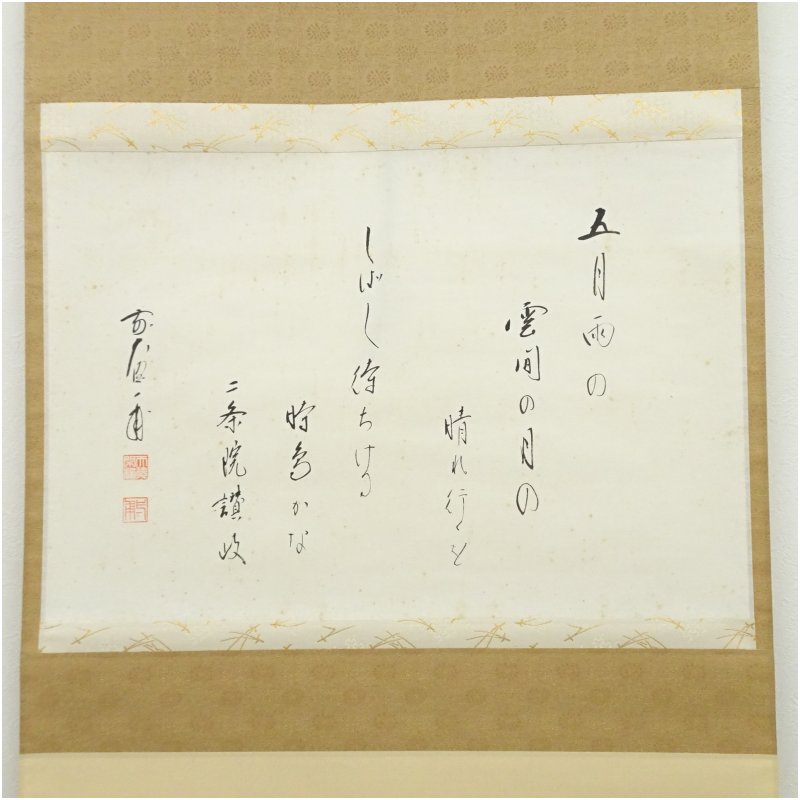 五月雨の
雲間の月の
晴れ行くを
しばし待ちける
時鳥かな
二条院讃岐